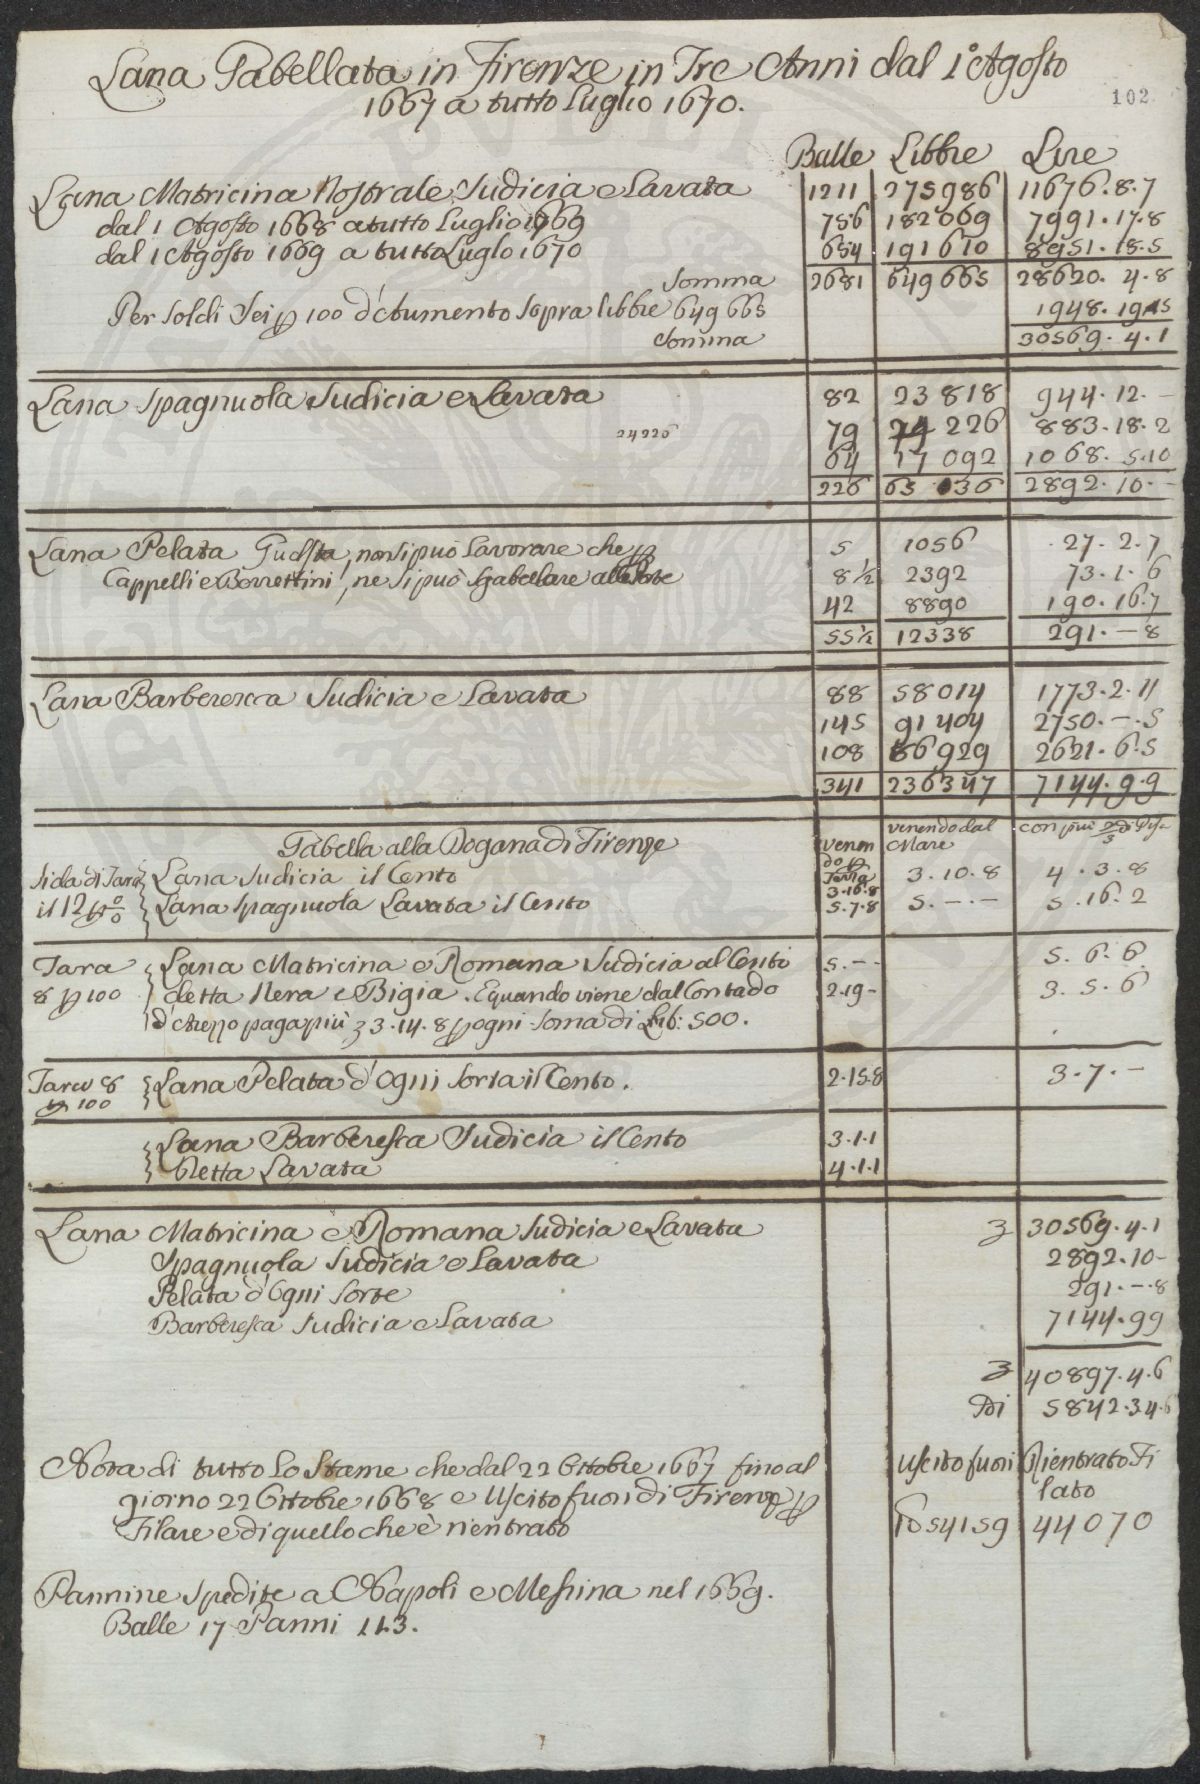 Lana Gabellata in Firenze in Tre Anni dal 1° Agosto
1667 a tutto Luglio 1670.
102
Balle Libbre Lire
Lana Matricina Nostrale Sudicia e Lavata 1211 275986 11676.8.7
dal 1 Agosto 1668 a tutto Luglio 1669 756 182069 7991.17.8
dal 1 Agosto 1669 a tutto Luglo 1670 654 191610 8951.18.5
Somma 2681 649665 28620.4.8
Per Soldi Sei p 100 d'Aumento sopra libbre 649665 1948.19.5
Somma 30569.4.1
Lana Spagnuola Sudicia e Lavata 82 23818 944.12.-
24226 79 24226 883.18.2
64 17092 1068.5.10
226 65136 2892.10.-
Lana Pelata Guasta, non si può Lavorare che p 5 1056 27.2.7
Cappelli e Berrettini, ne si può sgabellare 8½ 2392 73.1.6
42 8890 190.16.7
55½ 12338 291.-8
Lana Barberesca Sudicia e Lavata 88 58014 1773.2.11
145 91404 2750.-.5
108 86929 2621.6.5
341 236347 7144.9.9
Gabella alla Dogana di Firenze
Venendo p Terra venendo dal Mare con più ⅔ di
Si da di Tara Lana Sudicia il Cento 3.16.8 3.10.8 4.3.8
il 12 p% Lana Spagnuola Lavata il Cento 5.7.8 5.-.- 5.16.2
Tara Lana Matricina e Romana Sudicia al Cento 5.-- 5.6.6
8 p 100 detta Nera e Bigia. E quando viene dal Contado 2.19- 3.5.6
d'Arezzo paga più 3 3.14.8 p ogni Soma di Lib: 500.
Tara 8 Lana Pelata d'Ogni Sorta il Cento. 2.15.8 3.7.-
p 100
Lana Barberesca Sudicia il Cento 3.1.1
Detta Lavata 4.1.1
Lana Matricina e Romana Sudicia e Lavata 3 30569.4.1
Spagnuola Sudicia e Lavata 2892.10-
Pelata d'Ogni Sorte 291.-.8
Barberesca Sudicia e Lavata 7144.99
3 40897.4.6
Di 5842.3.4.6
Nota di tutto Lo Stame che dal 22 Ottobre 1667 fino al Uscito fuori Rientrato Fi
giorno 22 Ottobre 1668 e Uscito fuori di Firenze p lato
Filare e di quello che è rientrato 1054159 44070
Pannine Spedite a Napoli e Messina nel 1669.
Balle 17 Panni 113.